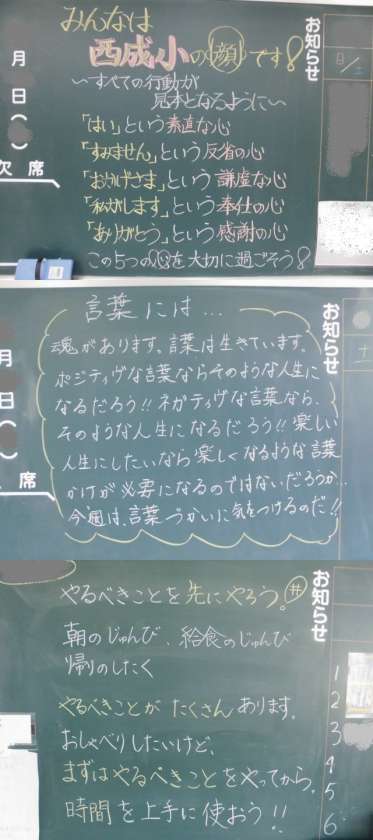 みんなは
西成小の顔です!
〜すべての行動が
見本となるように〜
「はい」という素直な心
「すみません」という反省の心
「おかげさま」という謙虚な心
「私がします」という奉仕の心
「ありがとう」という感謝の心
この5つの心を大切に過ごそう!
お知らせ
月
日
(
)
欠席
日
言葉には…
魂があります。言葉は生きています。
ポジティヴな言葉ならそのような人生に
なるだろう!!ネガティヴな言葉なら、
そのような人生になるだろう!!楽しい
人生にしたいなら楽しくなるような言葉
かけが必要になるのではないだろうか..
今週は、言葉づかいに気をつけるのだ!!
お知らせ
月
日
席
やるべきことを先にやろう。#
朝のじゅんび、給食のじゅんび
帰りのしたく
やるべきことがたくさんあります。
おしゃべりしたいけど、
まずはやるべきことをやってから。
時間を上手に使おう!!
お知らせ
1
2
3
4
5
6